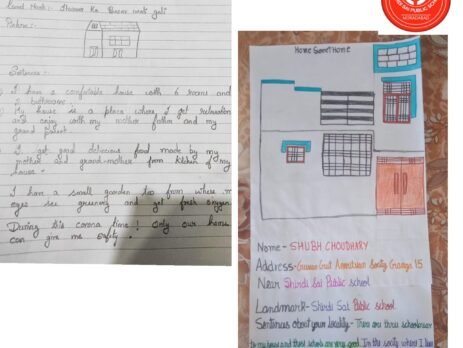 Land Mark:
Picture:
Sentences:
I have a comfortable house with 6 rooms and
2 bathroom.
My house is a place where I get relaxation
and enjoy with my mother father and my
grand parent.
I get good delicious food made by my
mother and grand-mother from kitchen of my
house.
I have a small garden too from where m
eyes see greenery and get fresh oxygen.
During this corona time! Only our home
can give me safety.
PUBLIC SCHOOL
MORADABAD
Home Sweet Home
Name- SHUBH CHOUDHARY
Address-
Near Shirdi Sai Public school
Landmark- Shirdi Sai Public school.
Sentences about your locality- There are three schools near
to my house and these schools are very good. In the society where I live